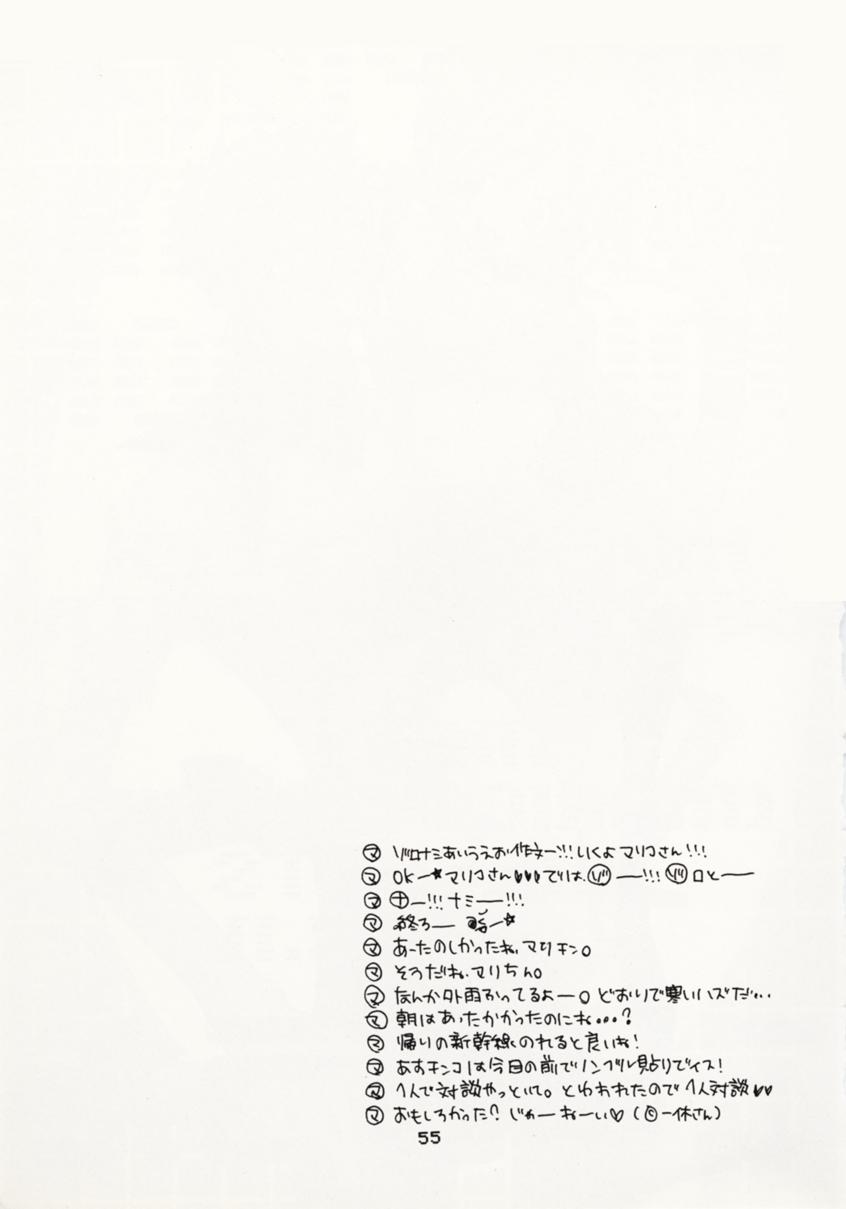 ㋮ ゾロナミあいうえお作文ー!!!いくよマリコさん!!!
㋮ OKー★マリコさん♥♥♥では、ゾー!!!ゾロとー
㋮ ナー!!!ナミー!!!
㋮ 終ろー ★
㋮ あーたのしかったね、マリチン。
㋮ そうだね、マリちん。
㋮ なんか外雨ふってるよー。どおりで寒いハズだ…
㋮ 朝はあったかかったのにね…?
㋮ 帰りの新幹線のれると良いね!
㋮ は今日の前でノンブル貼りでイス!
㋮ 1人で対談やっといて。といわれたので1人対談♥♥
㋮ おもしろかった?じゃーねーい♡(©一休さん)
55